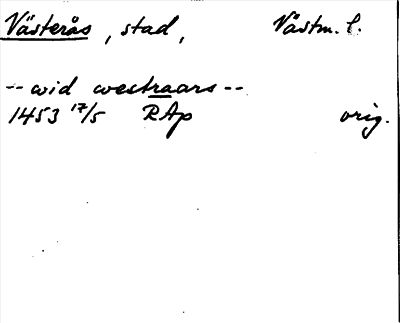 Västerås, stad, Västm. l.
-- wid westraars --
1453 17/5 RAp orig.